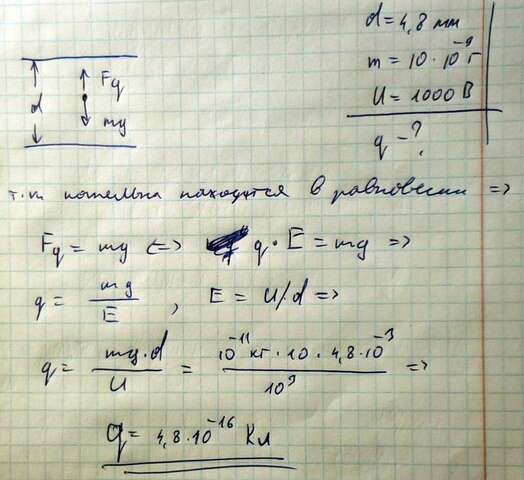 d = 4,8 мм
m = 10 · 10⁻⁹ г
U = 1000 В
q - ?
d
Fq
mg
т.к капелька находится в равновесии =>
Fq = mg <=> q · E = mg =>
q = mg / E , E = U/d =>
q = mg·d / U = 10⁻¹¹ кг · 10 · 4,8 · 10⁻³ / 10³ =>
q = 4,8 · 10⁻¹⁶ Кл